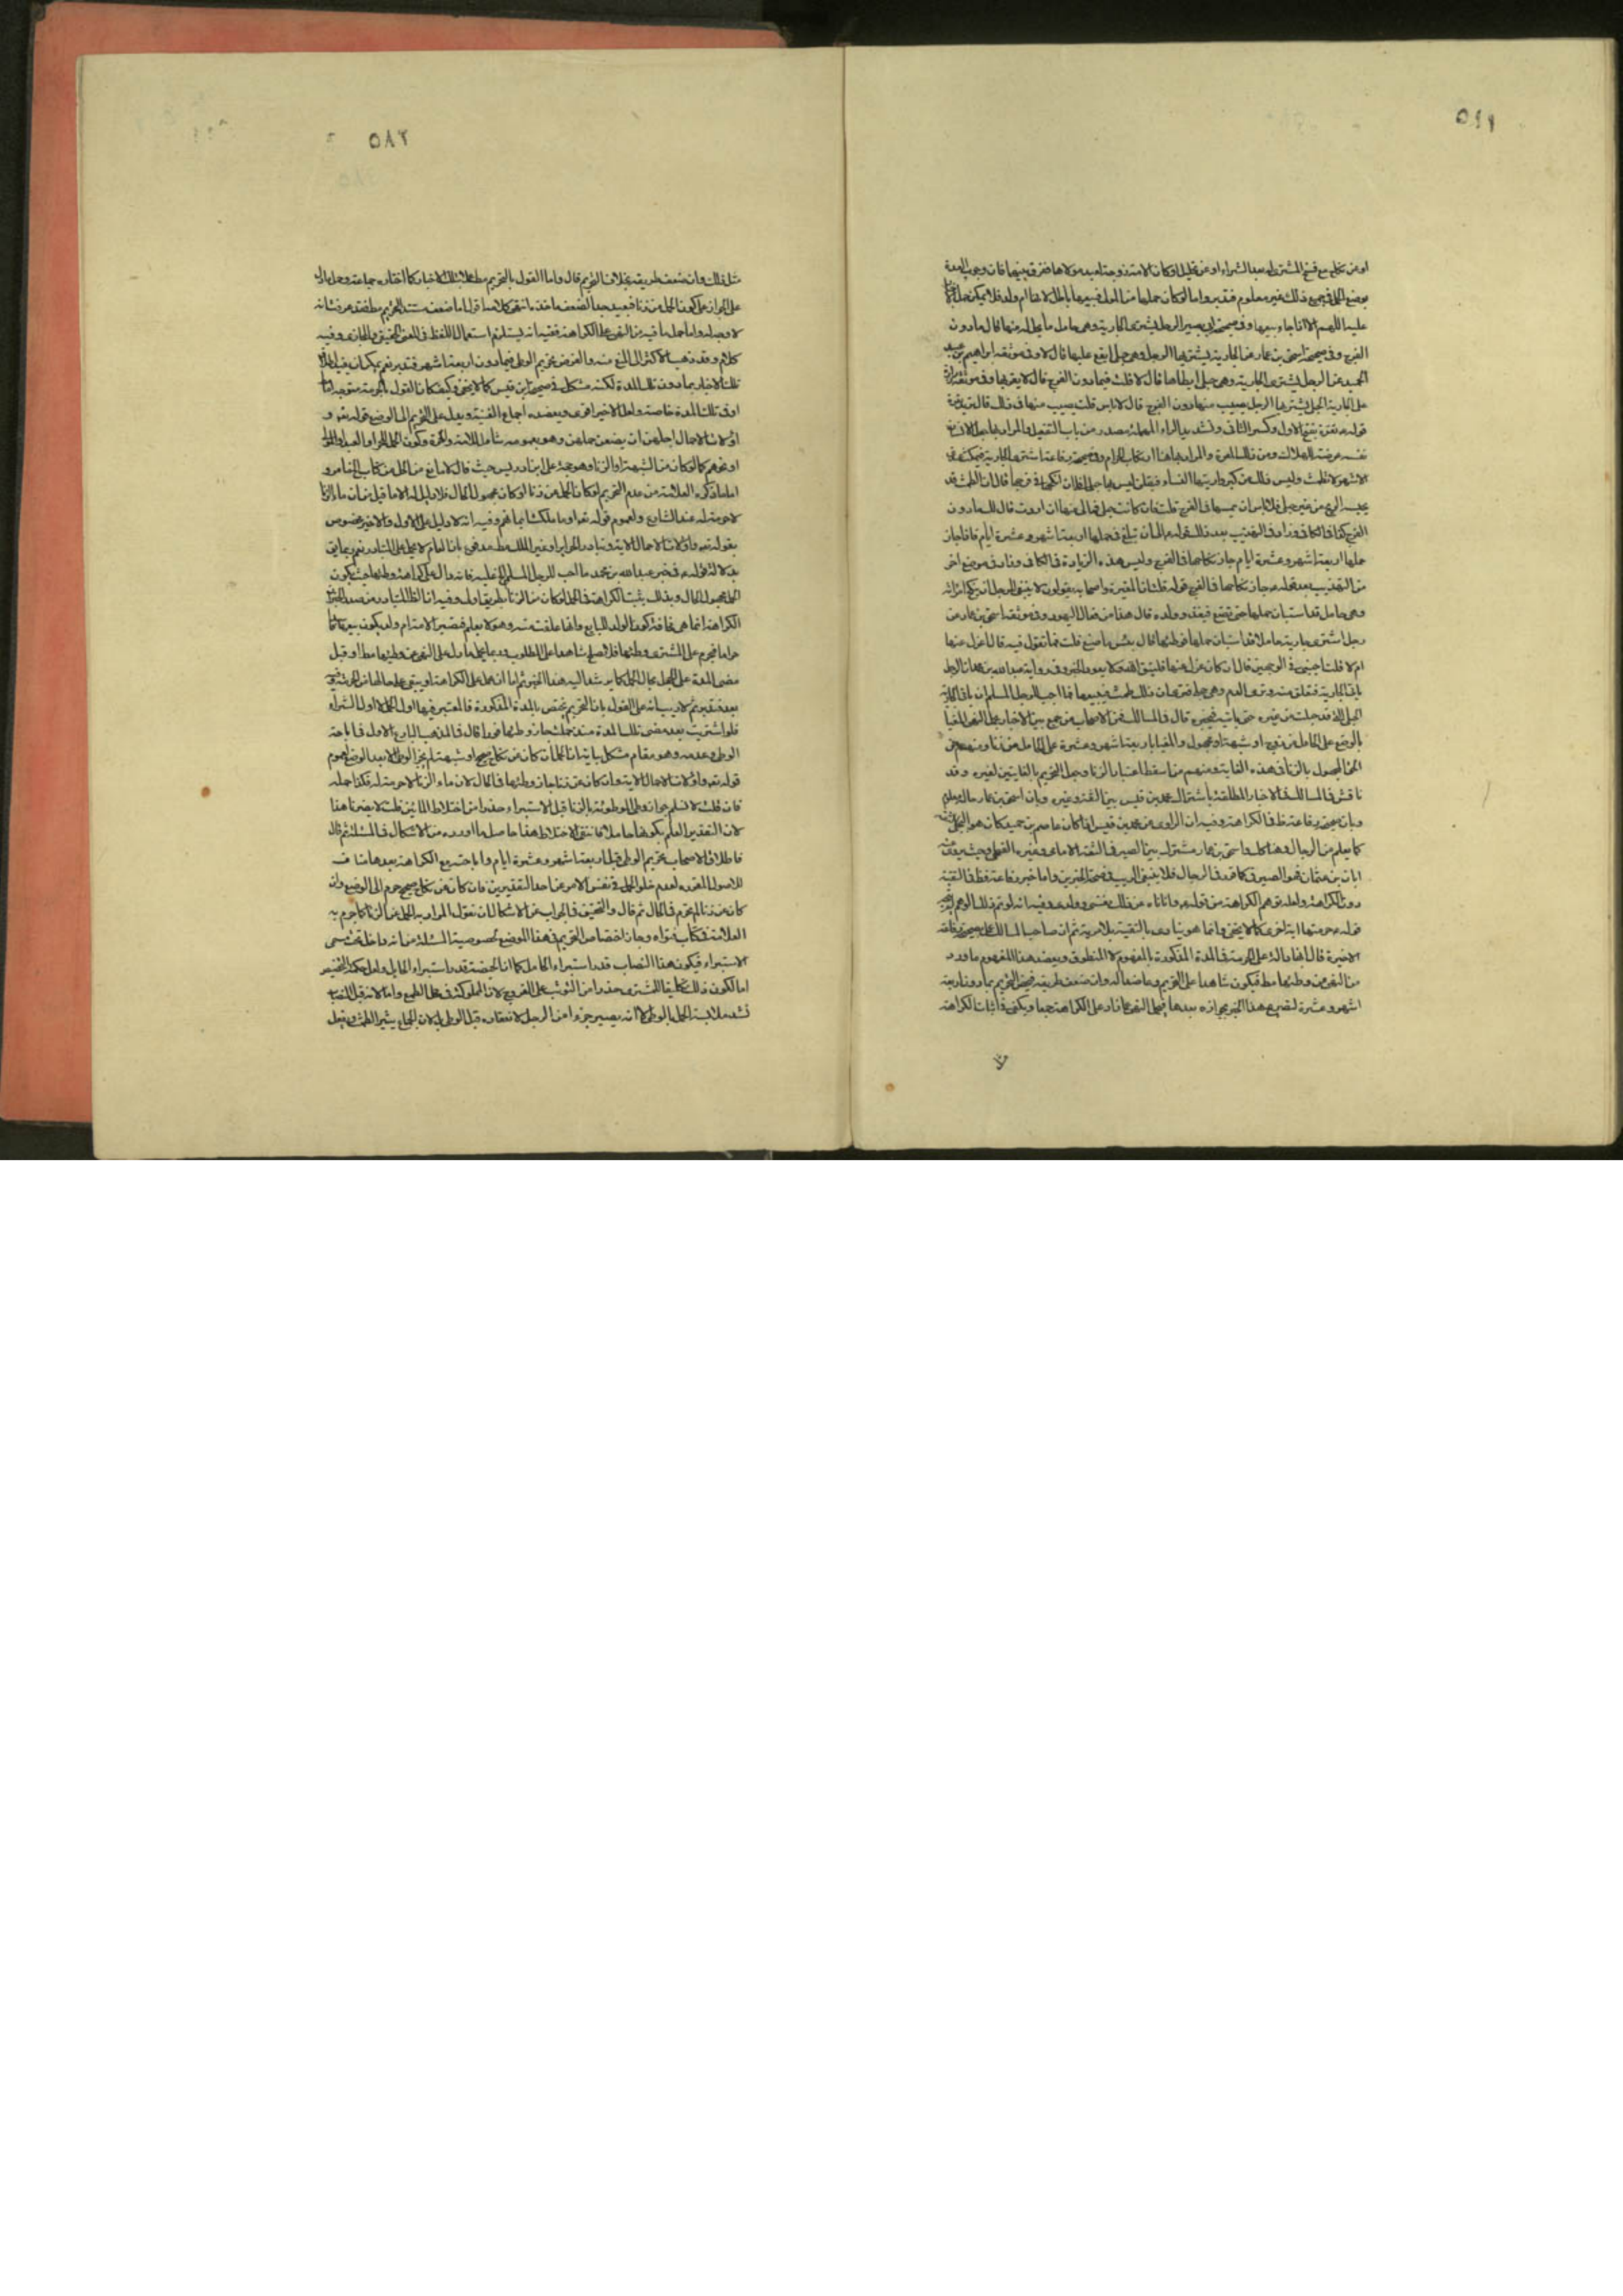 او عن نكاح مع فسخ المشترى له بعد الشراء او عن تحليل او كان الامة زوجة لعبد مولاها ففرق بينهما فان وجوب العدة
بوضع الحمل فى جميع ذلك غير معلوم فتدبر واما لو كان حملها من المولى فبيعها باطل لانها ام ولد فلا يمكن حمل
عليه اللهم الا اذا جاز بيعها وفى صحيحة ابى بصير الرجل يشترى الجارية وهى حامل ما يحل له منها قال ما دون
الفرج وفى صحيحة اسحق بن عمار عن الجارية يشتريها الرجل وهى حبلى ايقع عليها قال لا وفى موثقة ابراهيم بن عبد
الحميد عن الرجل يشترى الجارية وهى حبلى ايطأها قال لا قلت فيما دون الفرج قال لا يقربها وفى موثقة
على الجارية الحبلى يشتريها الرجل يصيب منها دون الفرج قال لا باس قلت يصيب منها فى ذلك قال تريد تغرة
قوله ع تغرة بفتح الاول وكسر الثانى وتشديد الراء المهملة مصدر من باب التفعيل والمراد بها
نفسه عرضة للهلاك ومن ذلك الغرة والمراد بها هنا ارتكاب الحرام وفى صحيحة رفاعة اشترى الجارية فيمكث عندى
الاشهر لا تطمث وليس ذلك من كبر واريتها النساء فيقلن ليس بها حبل افلى ان انكحها فى فرجها قال ان الطمث قد
يحبسه الريح من غير حبل فلا باس ان تمسها فى الفرج قلت فان كانت حبلى فما لى منها ان اردت قال لك ما دون
الفرج كذا فى الكافى وزاد فى التهذيب بعد ذلك قوله ع الى ان تبلغ فى حملها اربعة اشهر وعشرة ايام فاذا جاز
حملها اربعة اشهر وعشرة ايام جاز نكاحها فى الفرج وليس هذه الزيادة فى الكافى وزاد فى موضع اخر
من التهذيب بعد قوله جاز نكاحها فى الفرج قوله قلت ان المغيرة واصحابه يقولون لا ينبغى للرجل ان ينكح امراته
وهى حامل قد استبان حملها حتى تضع فيغذو ولده قال هذا من فعال اليهود وفى موثقة اسحق بن عمار عن
رجل اشترى جارية حاملا قد استبان حملها فوطئها قال بئس ما صنع قلت فما تقول فيه قال اعزل عنها
ام لا قلت اجبنى فى الوجهين قال ان كان عزل عنها فليتق الله ولا يعود الخبر وفى رواية عبد الله بن محمد ان الرجل
ياتى الجارية فتعلق منه وترى الدم وهى حبلى فترى ان ذلك طمث فيبيعها فما احب للرجل المسلم ان ياتى الجارية
الحبلى التى قد حبلت من غيره حتى ياتيه فيخبره قال فى المسالك فمن الاصحاب من جمع بين الاخبار بحمل النهى المغيا
بالوضع على الحامل من زوج او شبهة او مجهول والمغيا باربعة اشهر وعشرة على الحامل من زنا ومنهم من
الحق المجهول بالزنا فى هذه الغاية ومنهم من اسقط اعتبار الزنا وجعل التحريم بالغايتين لغيره وقد
ناقش فى المسالك فى الاخبار المطلقة باشتراك محمد بن قيس بين الثقة وغيره وبان اسحق بن عمار حاله معلوم
وبان صحيحة رفاعة ظ فى الكراهة وفيه ان الراوى عن محمد بن قيس اذا كان عاصم بن حميد كان هو البجلى الثقة
كما يعلم من الرجال وهنا كك واسحق بن عمار مشترك بين الصيرفى الثقة الامامى وغيره الفطحى وحيث يروى عنه
ابان بن عثمان فهو الصيرفى كما قرر فى الرجال فلا ينبغى الريب فى صحة الخبرين واما خبر رفاعة فظ فى التقية
دون الكراهة ولعله توهم الكراهة من قوله ع وانا ناه عن ذلك نفسى وولدى وفيه انه لو تم ذلك لاوهم
قوله ع حرمتها اية اخرى كما لا يخفى وانما هو ينادى بالتقية بلا مرية ثم ان صاحب المسالك على صحيحة رفاعة
الاخيرة قال انها دالة على الحرمة فى المدة المذكورة بالمفهوم لا المنطوق ويعضد هذا المفهوم ما ورد
من النهى عن وطئها مط فيكون شاهدا على التحريم وعاضدا له وان ضعف طريقه فيختص التحريم بما دون اربعة
اشهر وعشرة لتصريح هذا الخبر بجوازه بعدها فيحمل النهى عما زاد على الكراهة جمعا ويكفى فى اثبات الكراهة
مثل
٥٨٣
مثل ذلك وان ضعف طريقه بخلاف التحريم قال واما القول بالتحريم مطلقا بتلك الاخبار كما اختاره جماعة وحمل ما دل
على الجواز على كون الحمل من زنا فبعيد جدا لضعف ماخذه انتهى كلامه اقول اما ضعف مستند التحريم مطلقا فقد عرفت انه
لا وجه له واما حمل ما فيه من النهى على الكراهة ففيه انه يستلزم استعمال اللفظ فى المعنى الحقيقى والمجازى وفيه
كلام وقد ذهب الاكثر الى المنع منه والغرض تحريم الوطى فيما دون اربعة اشهر فتدبر نعم يمكن ان يقيد اطلاق
تلك الاخبار بما دون تلك المدة لكنه مشكل فى صحيحة ابن قيس كما لا يخفى وكيف كان القول بالحرمة متوجه اما
او فى تلك المدة خاصة ولعل الاخير اقوى ويعضده اجماع الغنية ويدل على التحريم الى الوضع قوله تعو و
اولات الاحمال اجلهن ان يضعن حملهن وهو بعمومه شامل للامة والحرة وكون الحمل للحر او العبد او المولى
او غيرهم كما لو كان من الشبهة او الزنا وهو حجة على ابن ادريس حيث قال لا مانع من الحل من كتاب الخ
اما ما ذكره العلامة من عدم التحريم لو كان الحمل من زنا او كان مجهول الحال فلا دليل له الا ما قيل من ان ماء الزنا
لا حرمة له عند الشارع ولعموم قوله تعو او ما ملكت ايمانهم وفيه انه لا دليل على الاول والاخير مخصوص
بقوله تع واولات الاحمال الاية وتبادر الحراير او غير الملك منه مدفوع بان العام لا يحمل على المتبادر نعم ربما يق
بدلالة قوله ع فى خبر عبد الله بن محمد ما احب للرجل المسلم الخ عليه فانه دال على كراهة وطئها حيث يكون
الحمل مجهول الحال وبذلك يثبت الكراهة فى الحمل لو كان من الزنا بطريق اولى وفيه ان الظ المتبادر من صدر الخبر ان
الكراهة انما هى مخافة كون الولد للبايع وانها علقت منه وهو لا يعلم فتصير الامة ام ولد يكون بيعها
حراما فيحرم على المشترى وطئها فلا يصلح شاهدا على المطلوب وربما يحمل ما دل على النهى عن وطئها مط او قبل
مضى المدة على الجهل بحال الحمل كما يرشد اليه هذا الخبر ثم اما ان يحمل على الكراهة او يبقى على حالها من الحرمة
بعد فتدبر ثم لا ريب انه على القول بان التحريم يختص بالمدة المذكورة فالمعتبر فيها اول الحمل لا اول الشراء
فلو اشتريت بعد مضى تلك المدة منذ حملت جاز وطئها فورا قال فى المهذب البارع الاول فى اباحة
الوطى وعدمه وهو مقام مشكل بيانه ان الحمل ان كان عن نكاح صحيح او شبهة لم يجز الوطى الا بعد الوضع لعموم
قوله تعو واولات الاحمال الاية وان كان عن زنا جاز وطئها فى الحال لان ماء الزنا لا حرمة له فكذا حمله
فان قلت لا نسلم جواز وطى الموطوئة بالزنا قبل الاستبراء حذرا من اختلاط المائين قلت لا يضرنا هذا
لان التقدير العلم بكونها حاملا فانتفى الاختلاط هذا حاصل ما اورده من الاشكال فى المسئلة ثم قال
فاطلاق الاصحاب تحريم الوطى قبل اربعة اشهر وعشرة ايام واباحته مع الكراهة بعدها مناف
للاصول المقررة لعدم خلو الحمل فى نفس الامر عن احد التقديرين فان كان عن نكاح صحيح حرم الى الوضع وان
كان عن زنا لم يحرم فى الحال ثم قال والتحقيق فى الجواب عن الاشكال ان نقول المراد به الحمل عن الزنا كما جزم به
العلامة فى كتاب فتواه وجاز اختصاص التحريم فى هذا الموضع لخصوصية المسئلة من انه داخل تحت مسمى
الاستبراء فيكون هذا النصاب قدر استبراء الحامل كما ان الحيضة قدر استبراء الحايل ولعل حكمة التخصيص
اما لكون ذلك تكليفا للمشترى حذرا من التوثب على الفروج لان المملوكة فى محل الطمع واما لانه قبل المدة
تشتد ملابسة الحمل بالوطى لا انه يصير جزءا من الرجل لانعقاده قبل الوطى بل لان الجماع يثير الطمث ويفعل